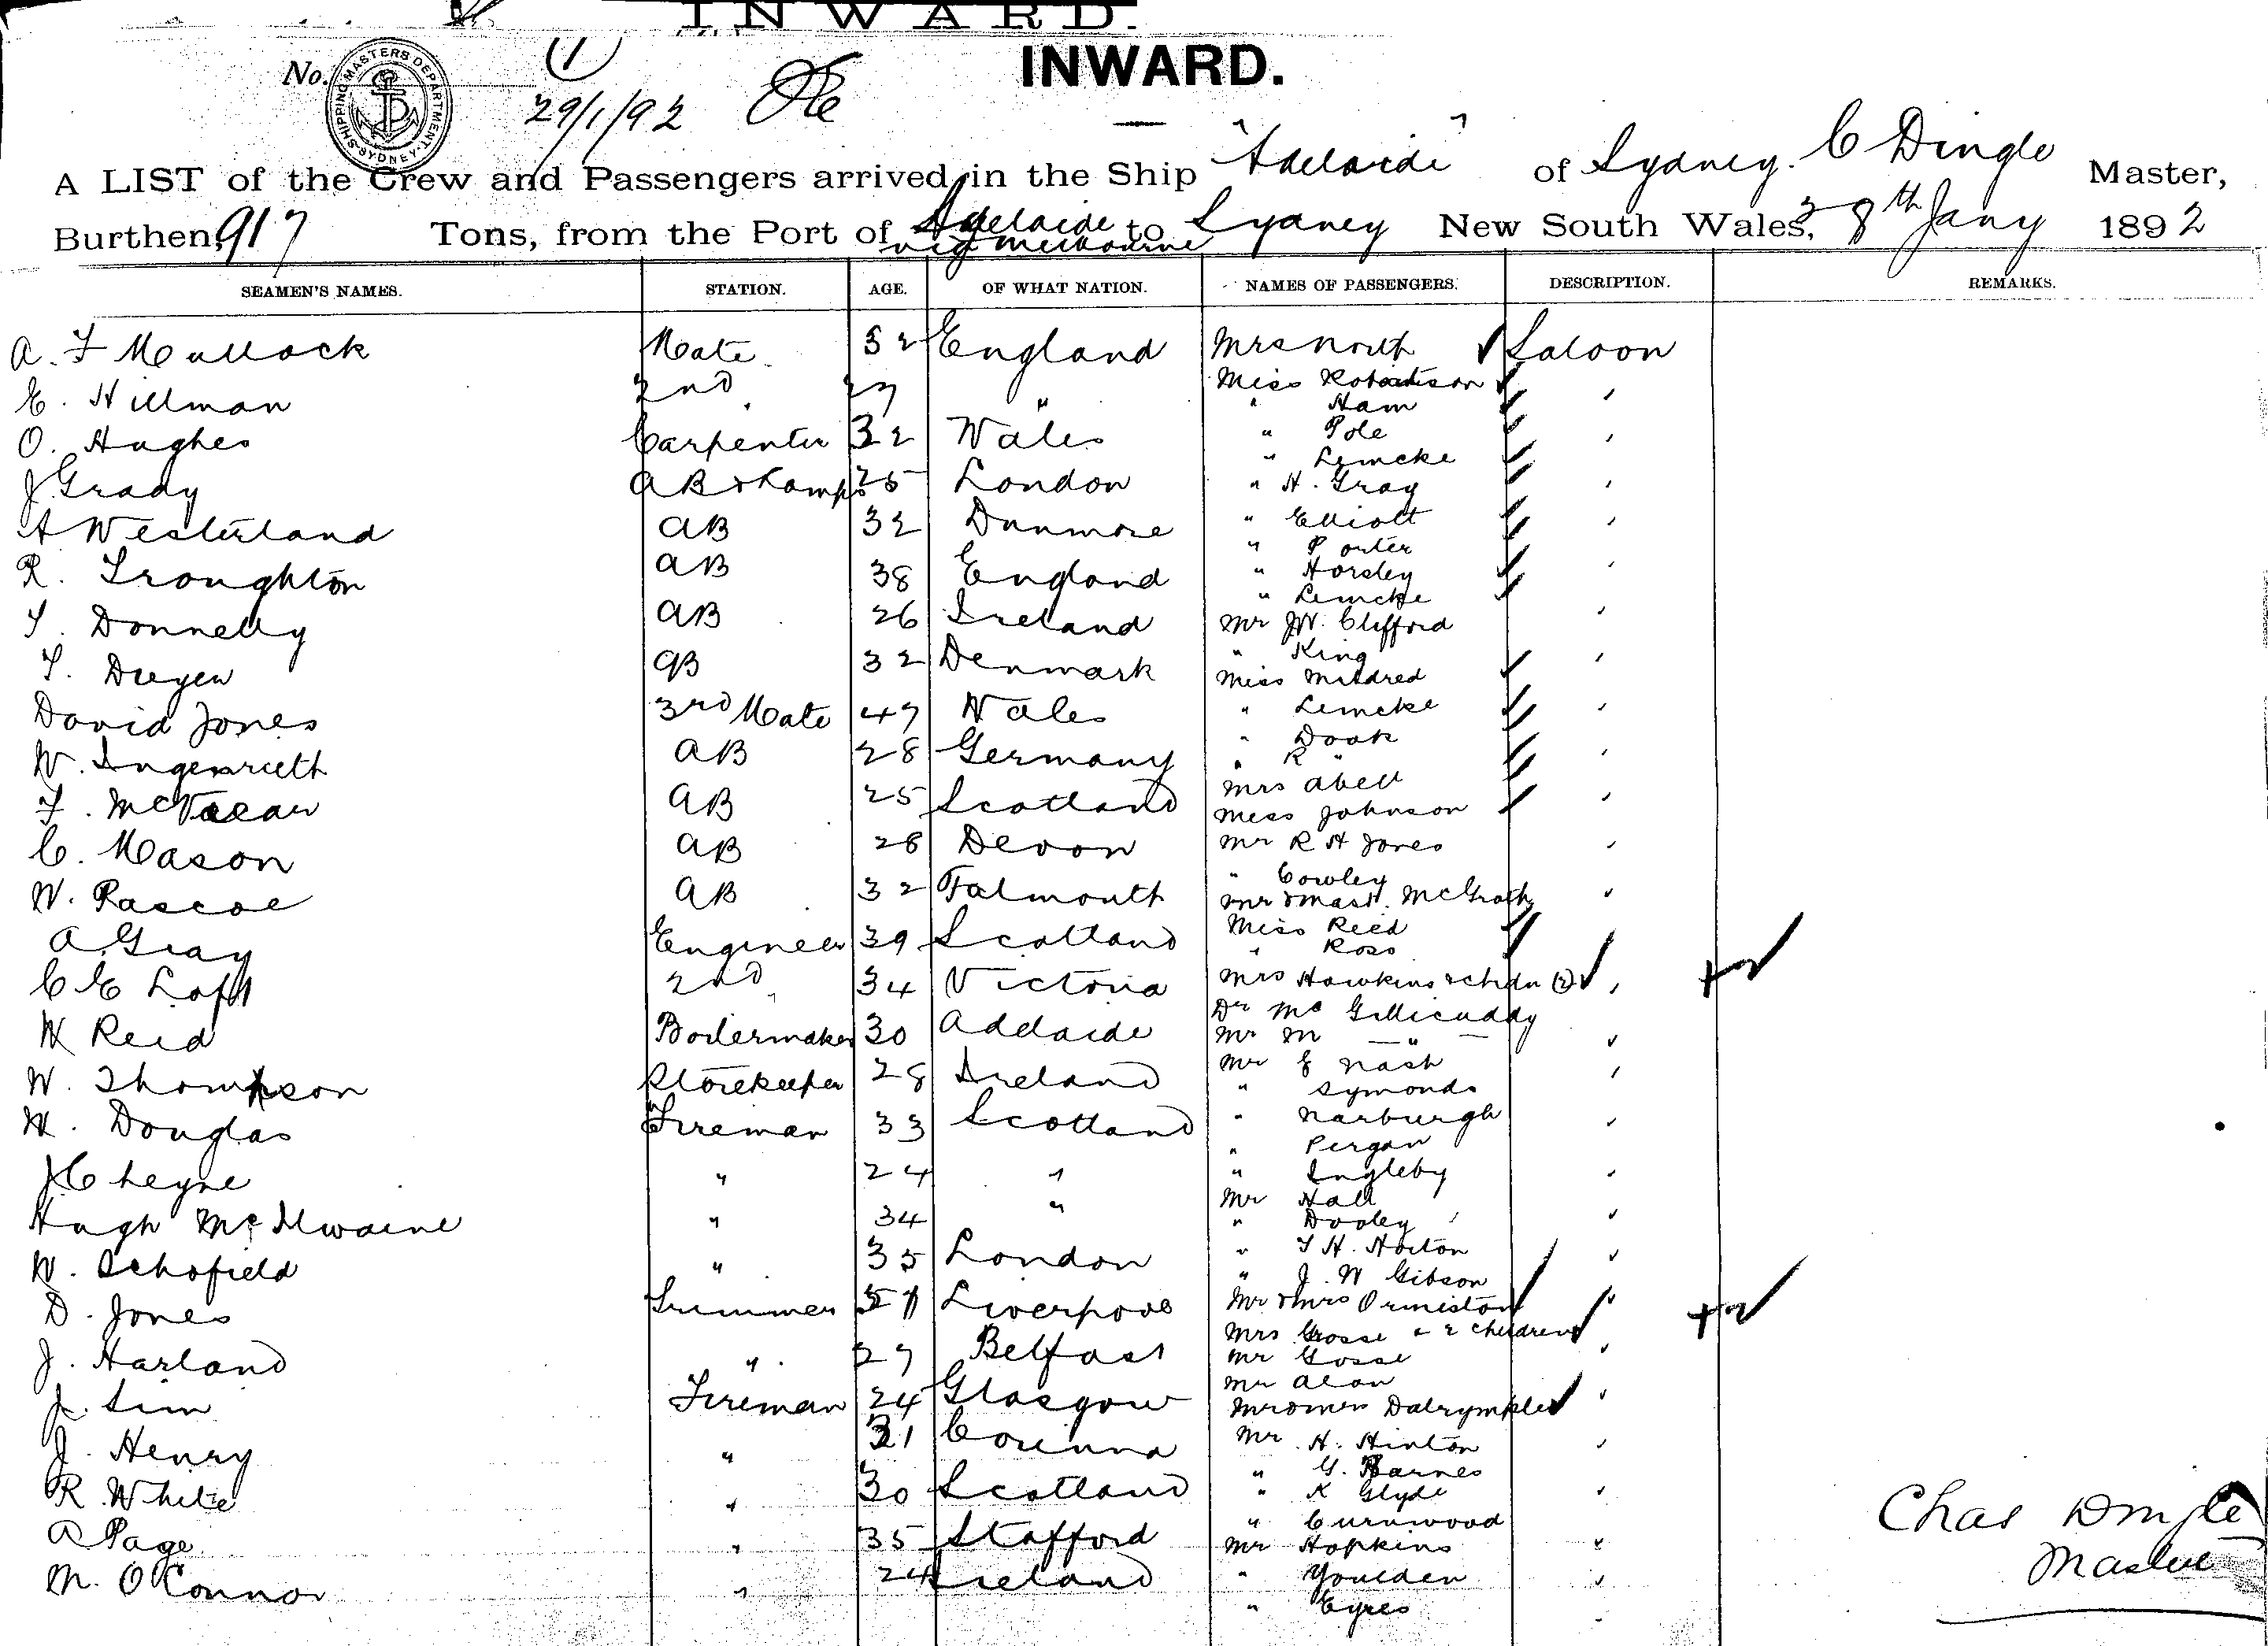 INWARD.
INWARD.
No.
SHIPPING MASTERS DEPARTMENT. SYDNEY
(1)
29/1/92
A LIST of the Crew and Passengers arrived in the Ship "Adelaide" of Sydney. C Dingle Master,
Burthen, 917 Tons, from the Port of Adelaide via Melbourne to Sydney New South Wales, 28th Jany 1892
SEAMEN'S NAMES. STATION. AGE. OF WHAT NATION. NAMES OF PASSENGERS. DESCRIPTION. REMARKS.
A. F Mullock Mate 32 England Mrs North Saloon
E. Hillman 2nd 27 " Miss Robertson
" Ham
O. Hughes Carpenter 32 Wales " Pole
" Lemcke
J Grady AB & Lamps 25 London " H. Gray
A Westerland AB 32 Dunmore " Elliott
" Porter
R. Troughton AB 38 England " Horsley
" Lemcke
T. Donnelly AB 26 Ireland Mr J.W. Clifford
" King
T. Dreyen AB 32 Denmark Miss Mildred
David Jones 3rd Mate 47 Wales " Lemcke
" Dook
W. AB 28 Germany " R "
Mrs Abell
F. AB 25 Scotland Miss Johnson
C. Mason AB 28 Devon Mr R H Jones
" Cowley
W. Pascoe AB 32 Falmouth Mr & Mast. McGrath
Miss Reed
A Gray Engineer 39 Scotland " Ross
C E Loft 2nd 34 Victoria Mrs Hawkins & chdn (2)
Dr McGillicuddy
W Reid Boilermaker 30 Adelaide Mr M "
W. Thompson Storekeeper 28 Ireland Mr E Nash
" Symonds
W. Douglas Fireman 33 Scotland " Narburgh
" Pergan
J Cheyne " 24 " " Ingleby
Mr Hall
Hugh McIlwaine " 34 " " Dooley
W. Schofield " 35 London " T H. Horton
" J. W Gibson
D. Jones Trimmer 51 Liverpool Mr & Mrs Ormiston
Mrs Gosse & 2 children
J. Harland " 27 Belfast Mr Gosse
Mr Alan
J. Sim Fireman 24 Glasgow Mr & Mrs Dalrymple
J. Henry " 31 Corunna Mr H. Hinton
" G. Barnes
R. White " 30 Scotland " K Glyde
" Curnwood
A Page " 35 Stafford Mr Hopkins
M. O'Connor " 24 Ireland " Youlden
" Eyres
Chas Dingle
Master